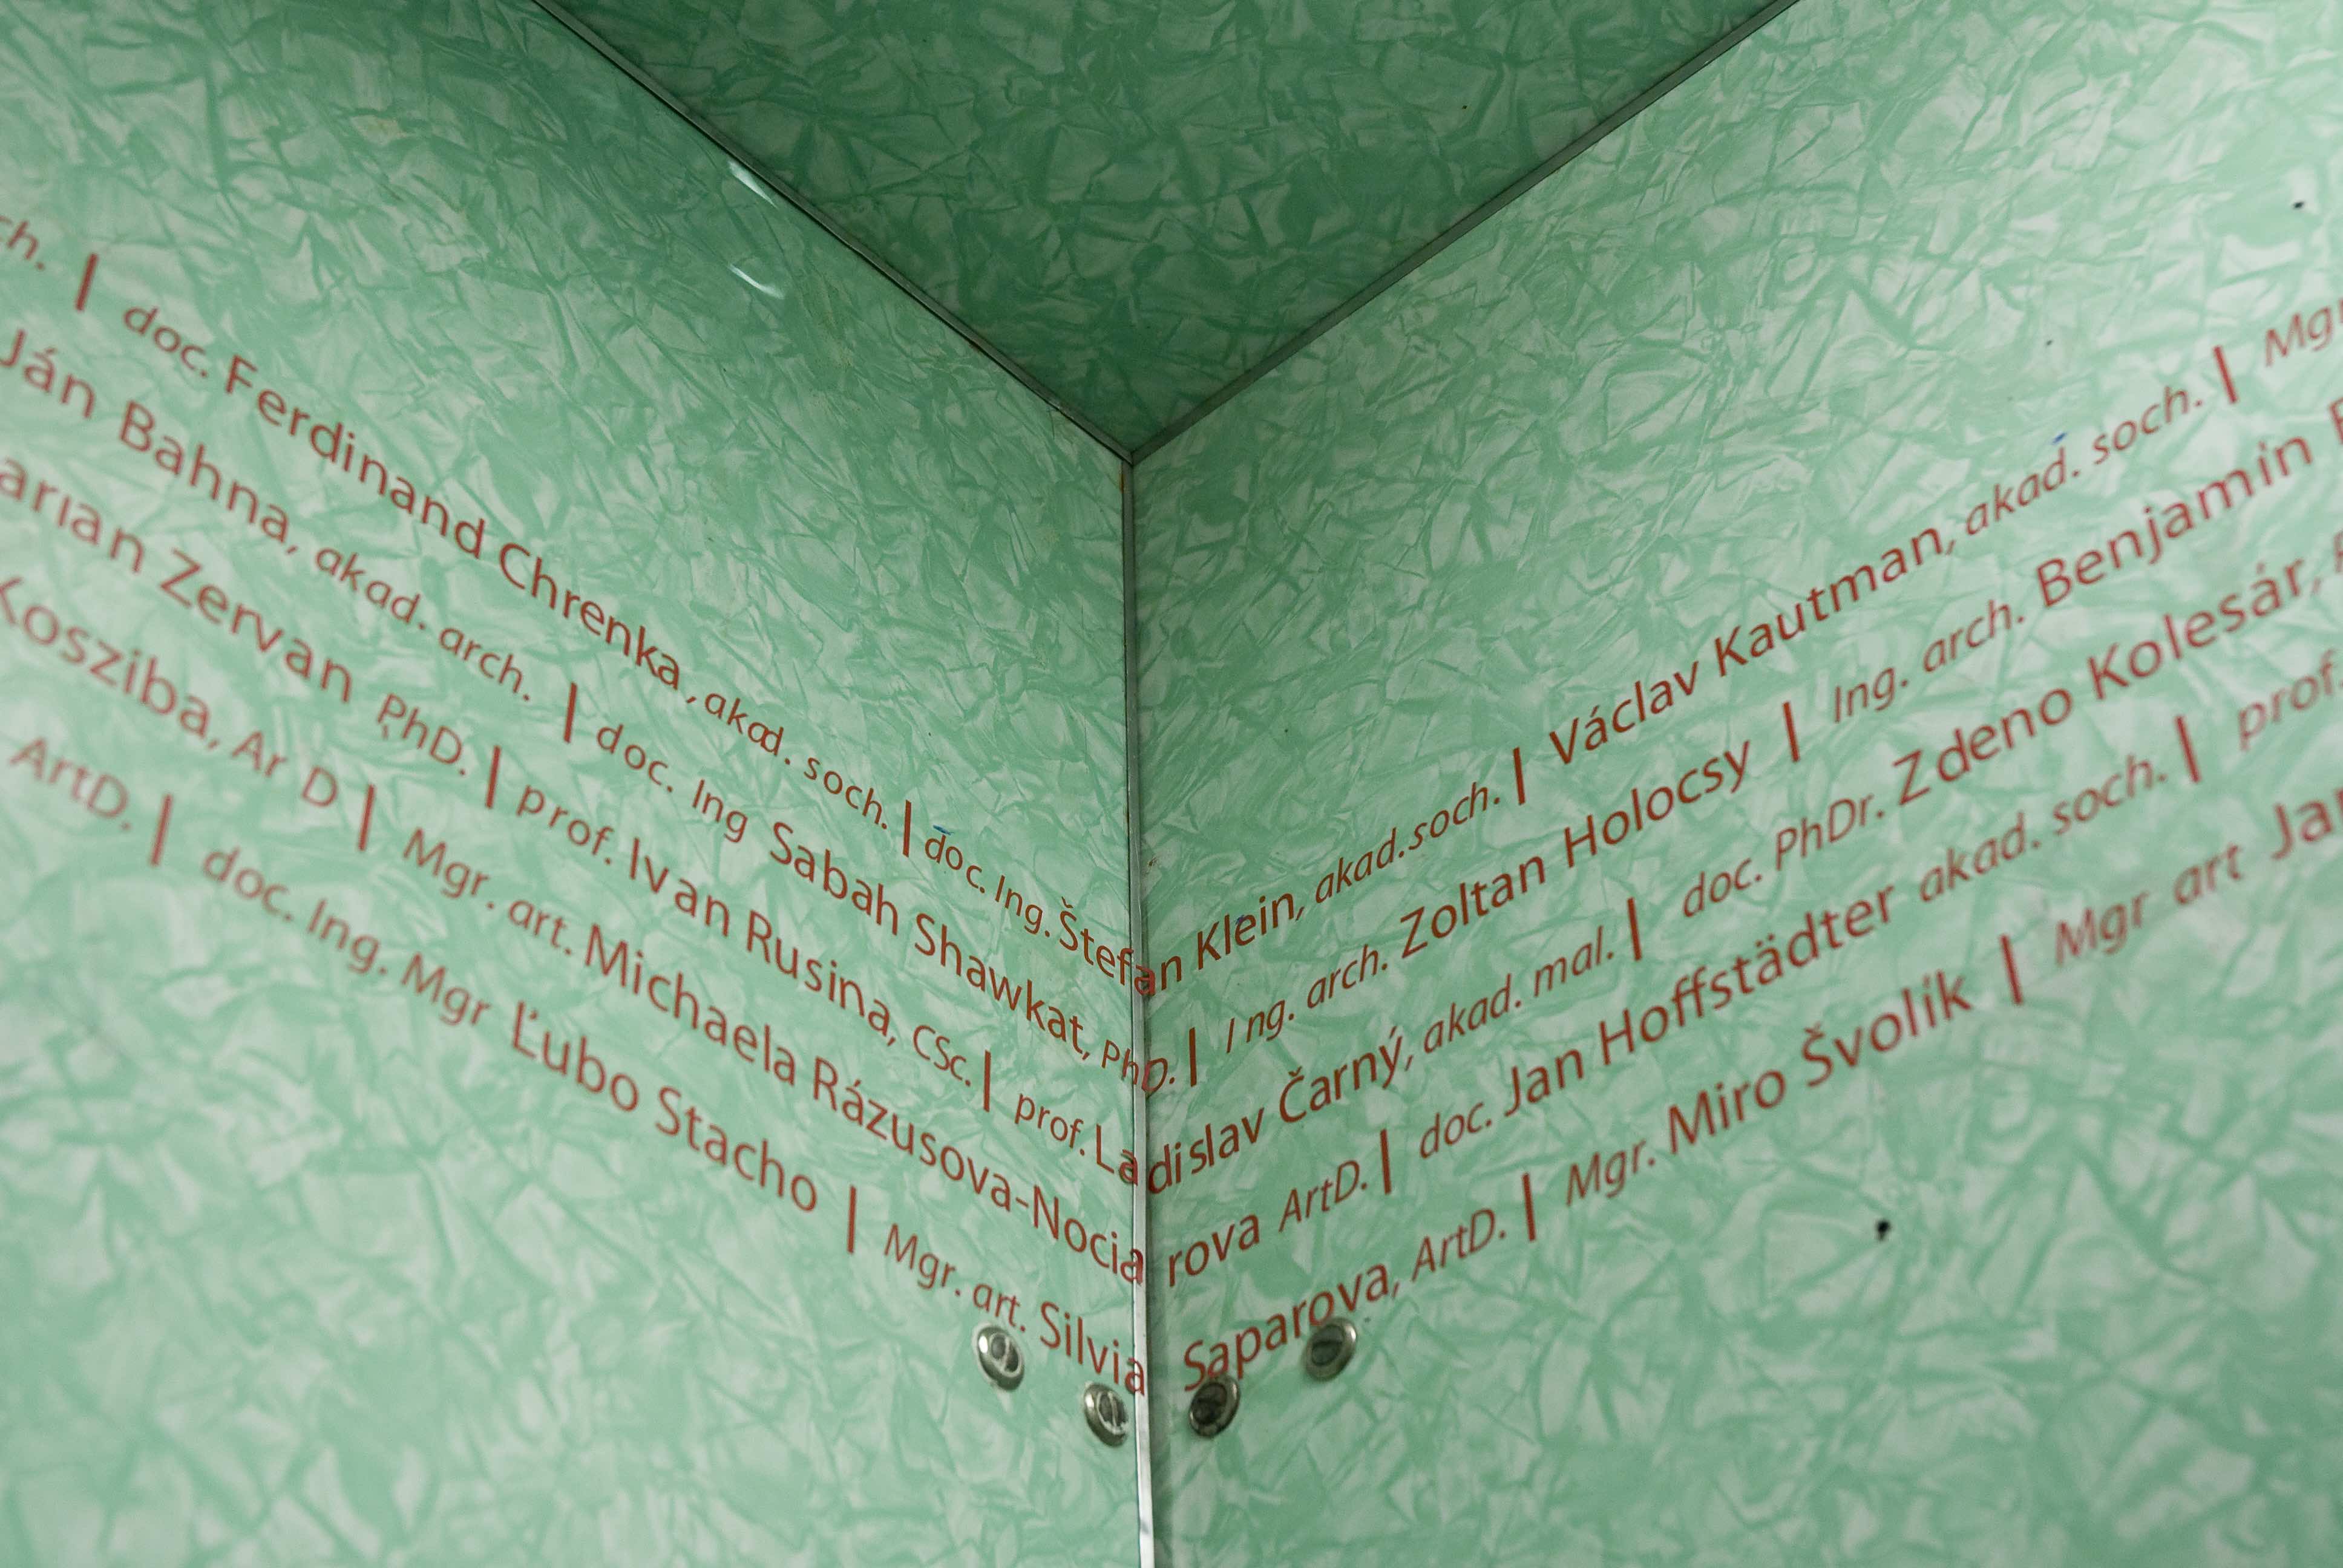 ch. | doc. Ferdinand Chrenka, akad. soch. | doc. Ing. Štefan Klein, akad. soch. | Václav Kautman, akad. soch. | Mgr
Ján Bahna, akad. arch. | doc. Ing Sabah Shawkat, PhD. | Ing. arch. Zoltan Holocsy | Ing. arch. Benjamin
arian Zervan PhD. | prof. Ivan Rusina, CSc. | prof. Ladislav Čarný, akad. mal. | doc. PhDr. Zdeno Kolesár,
Kosziba, Ar D | Mgr. art. Michaela Rázusova-Nocia rova ArtD. | doc. Jan Hoffstädter akad. soch. | prof.
ArtD. | doc. Ing. Mgr Ľubo Stacho | Mgr. art. Silvia Saparova, ArtD. | Mgr. Miro Švolík | Mgr art Jan